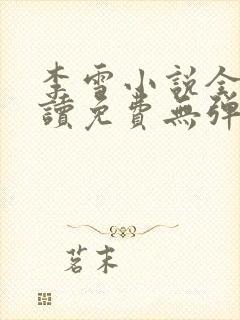 李雪小說全
讀免費無彈
茗末